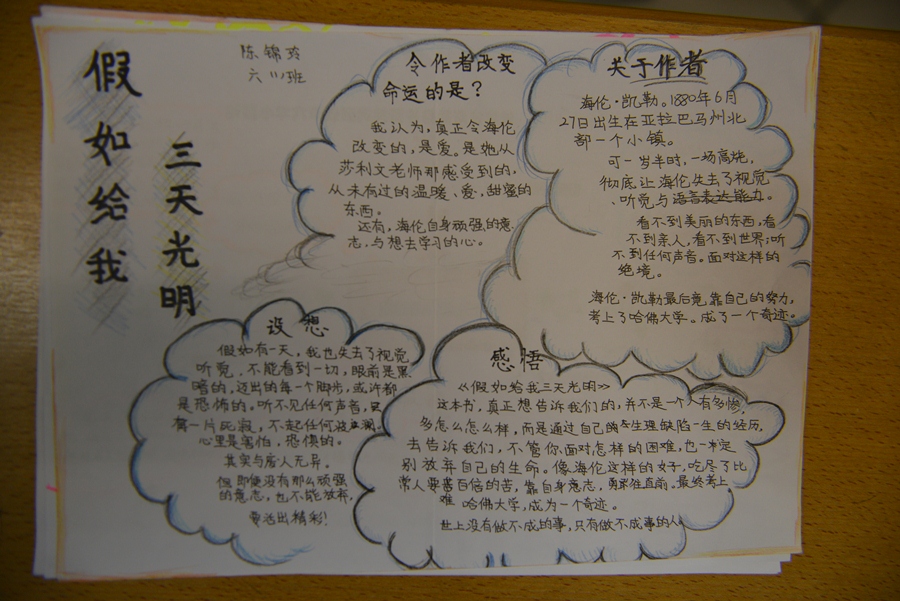 假如给我
三天光明
陈锦玲
六(1)班
令作者改变
命运的是？
我认为,真正令海伦
改变的,是爱。是她从
莎利文老师那感受到的,
从未有过的温暖、爱,甜蜜的
东西。
还有,海伦自身顽强的意
志,与想去学习的心。
关于作者
海伦·凯勒。1880年6月
27日出生在亚拉巴马州北
部一个小镇。
可一岁半时,一场高烧,
彻底让海伦失去了视觉
、听觉与语言表达能力。
看不到美丽的东西,看
不到亲人,看不到世界;听
不到任何声音。面对这样的
绝境。
海伦·凯勒最后竟靠自己的努力,
考上了哈佛大学。成了一个奇迹。
设想
假如有一天,我也失去了视觉
听觉,不能看到一切,眼前是黑
暗的,迈出的每一个脚步,或许都
是恐怖的。听不见任何声音,
一片死寂,不起任何波澜。
心里是害怕,恐惧的。
其实与废人无异。
但即使没有那么顽强
的意志,也不能放弃,
要活出精彩!
感悟
《假如给我三天光明》
这本书,真正想告诉我们的,并不是一个人有多惨,
多怎么怎么样,而是通过自己的生理缺陷一生的经历,
去告诉我们,不管你面对怎样的困难,也一定
别放弃自己的生命。像海伦这样的女子,吃尽了比
常人要苦百倍的苦,靠自身意志,勇往直前。最终考上
难 哈佛大学,成为一个奇迹。
世上没有做不成的事,只有做不成事的人